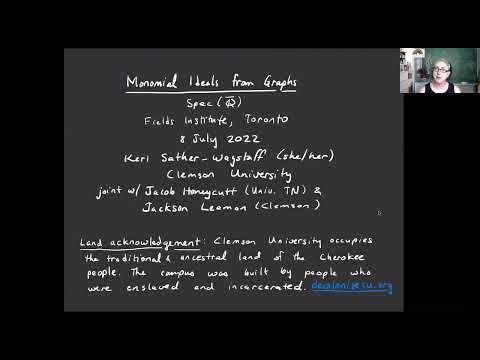 Monomial Ideals from Graphs
Spec(Q̄)
Fields Institute, Toronto
8 July 2022
Keri Sather-Wagstaff (she/her)
Clemson University
joint w/ Jacob Honeycutt (Univ. TN) &
Jackson Leaman (Clemson)
Land acknowledgement: Clemson University occupies
the traditional & ancestral land of the Cherokee
people. The campus was built by people who
were enslaved and incarcerated. decolonizecu.org